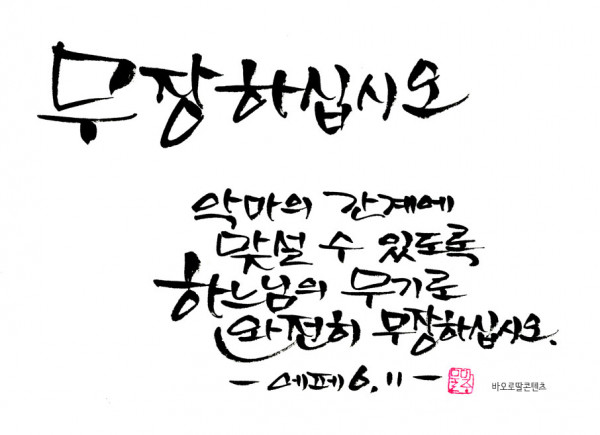 무장하십시오
악마의 간계에
맞설 수 있도록
하느님의 무기로
완전히 무장하십시오.
- 에페 6, 11 -
바오로딸콘텐츠